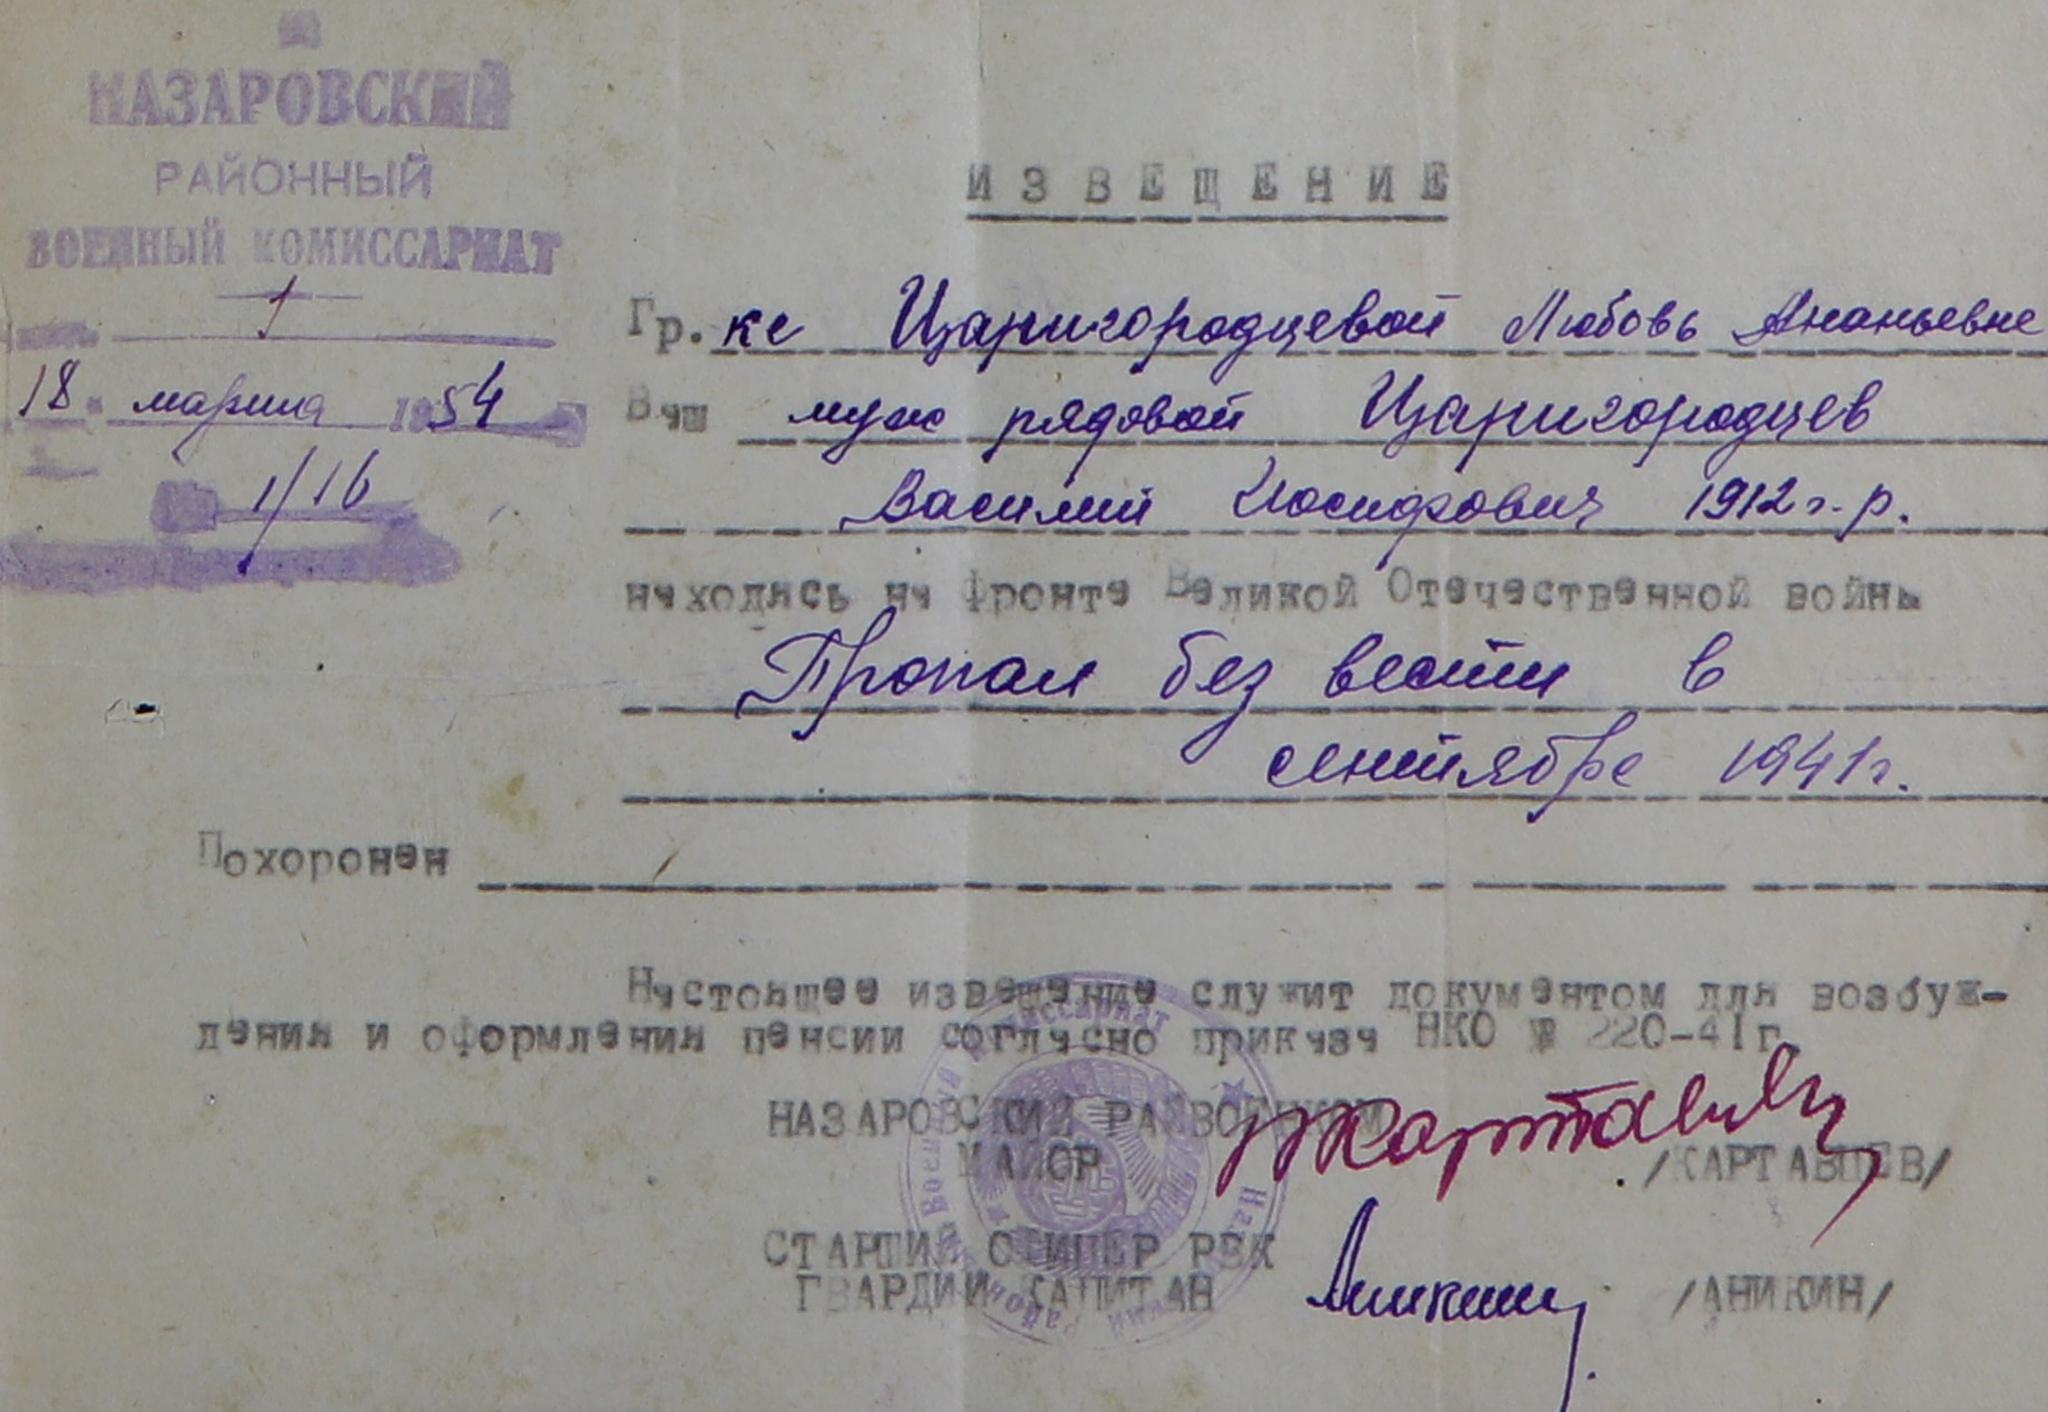 НАЗАРОВСКИЙ
РАЙОННЫЙ
ВОЕННЫЙ КОМИССАРИАТ
1
18 марта 1954
1/16
ИЗВЕЩЕНИЕ
Гр. ке Царигородцевой Любовь Ананьевне
Ваш муж рядовой Царигородцев
Василий Иосифович 1912 г.р.
находясь на фронте Великой Отечественной войны
Пропал без вести в
сентябре 1941 г.
Похоронен
Настоящее извещение служит документом для возбуж-
дения и оформления пенсии согласно приказа НКО № 220-41г.
НАЗАРОВСКИЙ РАЙВОЕНКОМ
МАЙОР /КАРТАВЦЕВ/
СТАРШИЙ ОФИЦЕР РВК
ГВАРДИИ КАПИТАН /АНИКИН/